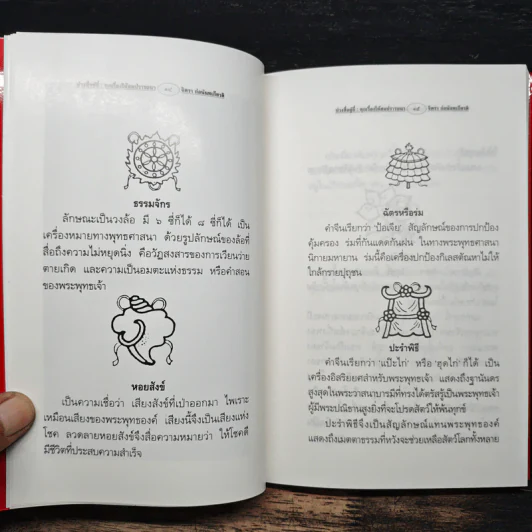 ธรรมจักร
ลักษณะเป็นวงล้อ มี ๖ ซี่ก็ได้ ๘ ซี่ก็ได้ เป็น
เครื่องหมายทางพุทธศาสนา ด้วยรูปลักษณ์ของล้อที่
สื่อถึงความไม่หยุดนิ่ง คือวัฏสงสารของการเวียนว่าย
ตายเกิด และความเป็นอมตะแห่งธรรม หรือคำสอน
ของพระพุทธเจ้า
หอยสังข์
เป็นความเชื่อว่า เสียงสังข์ที่เป่าออกมา ไพเราะ
เหมือนเสียงของพระพุทธองค์ เสียงนี้จึงเป็นเสียงแห่ง
โชค ลวดลายหอยสังข์จึงสื่อความหมายว่า ให้โชคดี
มีชีวิตที่ประสบความสำเร็จ
ฉัตรหรือร่ม
คำจีนเรียกว่า 'ป้อเจ็ง' สัญลักษณ์ของการปกป้อง
คุ้มครอง ร่มที่กันแดดกันฝน ในทางพระพุทธศาสนา
นิกายมหายาน ร่มนี้คือเครื่องปกป้องกิเลสตัณหาไม่ให้
ใกล้กรายปุถุชน
ปะรำพิธี
คำจีนเรียกว่า 'แป๊ะไก่' หรือ 'ฮุดไก่' ก็ได้ เป็น
เครื่องอิสริยยศสำหรับพระพุทธเจ้า แสดงถึงฐานันดร
สูงสุดในพระวาสนาบารมีที่ทรงได้ตรัสรู้เป็นพระพุทธเจ้า
ผู้มีพระปณิธานสูงยิ่งที่จะโปรดสัตว์ให้พ้นทุกข์
ปะรำพิธีจึงเป็นสัญลักษณ์แทนพระพุทธองค์
แสดงถึงเมตตาธรรมที่หวังจะช่วยเหลือสัตว์โลกทั้งหลาย